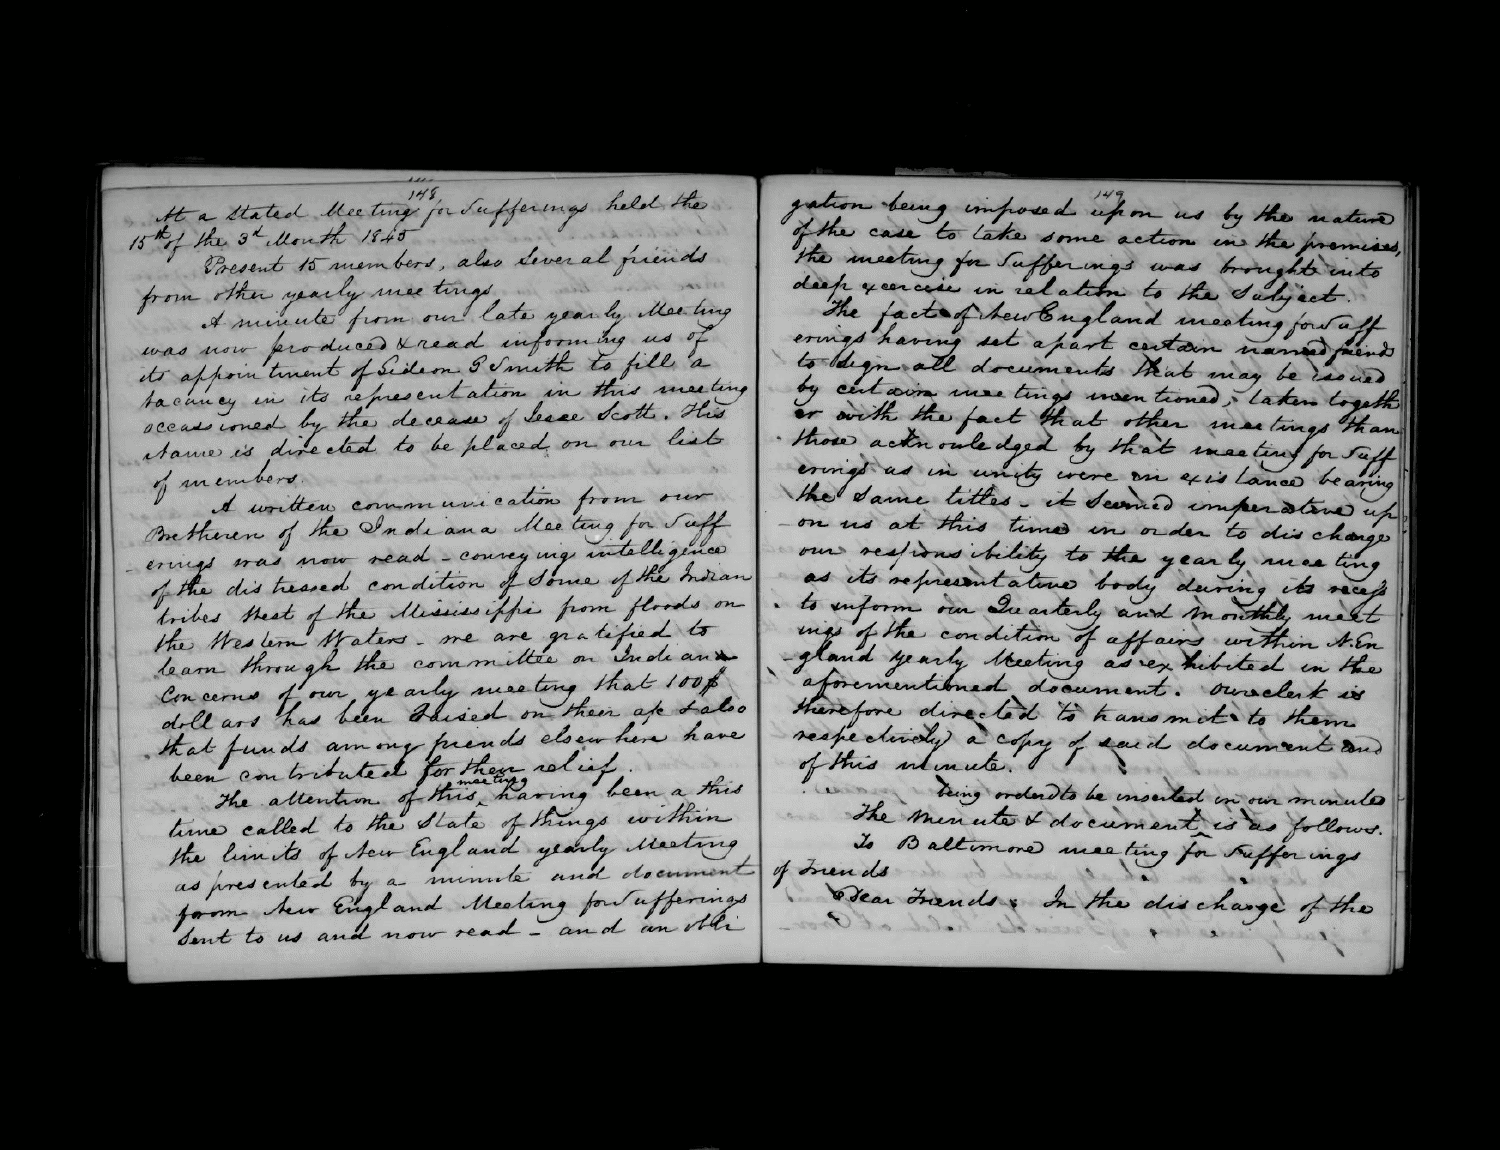 148
At a Stated Meeting for Sufferings held the
15th of the 3d Month 1845
Present 15 members, also several friends
from other yearly meetings
A minute from our late yearly Meeting
was now produced & read informing us of
its appointment of Gideon G Smith to fill a
vacancy in its representation in this meeting
occassioned by the decease of Jesse Scott. His
Name is directed to be placed on our list
of members.
A written communication from our
Bretheren of the Indiana Meeting for Suff
erings was now read - conveying intelligence
of the distressed condition of some of the Indian
tribes West of the Mississippi from floods on
the Western Waters - we are gratified to
learn through the committee on Indian
Concerns of our yearly meeting that 100$
dollars has been raised on their a/c & also
that funds among friends elsewhere have
been contributed for their relief.
The attention of this meeting having been a this
time called to the State of things within
the limits of New England yearly Meeting
as presented by a minute and document
from New England Meeting for Sufferings
Sent to us and now read - and an obli
149
gation being imposed upon us by the nature
of the case to take some action in the premises,
the meeting for Sufferings was brought into
deep exercise in relation to the Subject.
The fact of New England meeting for Suff
erings having set apart certain named friends
to Sign all documents that may be issued
by certain meetings mentioned, taken togeth
er with the fact that other meetings than
those acknowledged by that meeting for Suff
erings as in unity were in existance bearing
the Same titles - it Seemed imperative up
on us at this time in order to discharge
our responsibility to the yearly meeting
as its representative body during its recess
to inform our Quarterly and Monthly meet
ings of the condition of affairs within N. En
gland yearly Meeting as exhibited in the
aforementioned document. Our clerk is
therefore directed to transmit to them
respectively a copy of said document and
of this minute.
being orderd to be inserted in our minutes
The Minute & document is as follows.
To Baltimore meeting for Sufferings
of Friends
Dear Friends; In the discharge of the